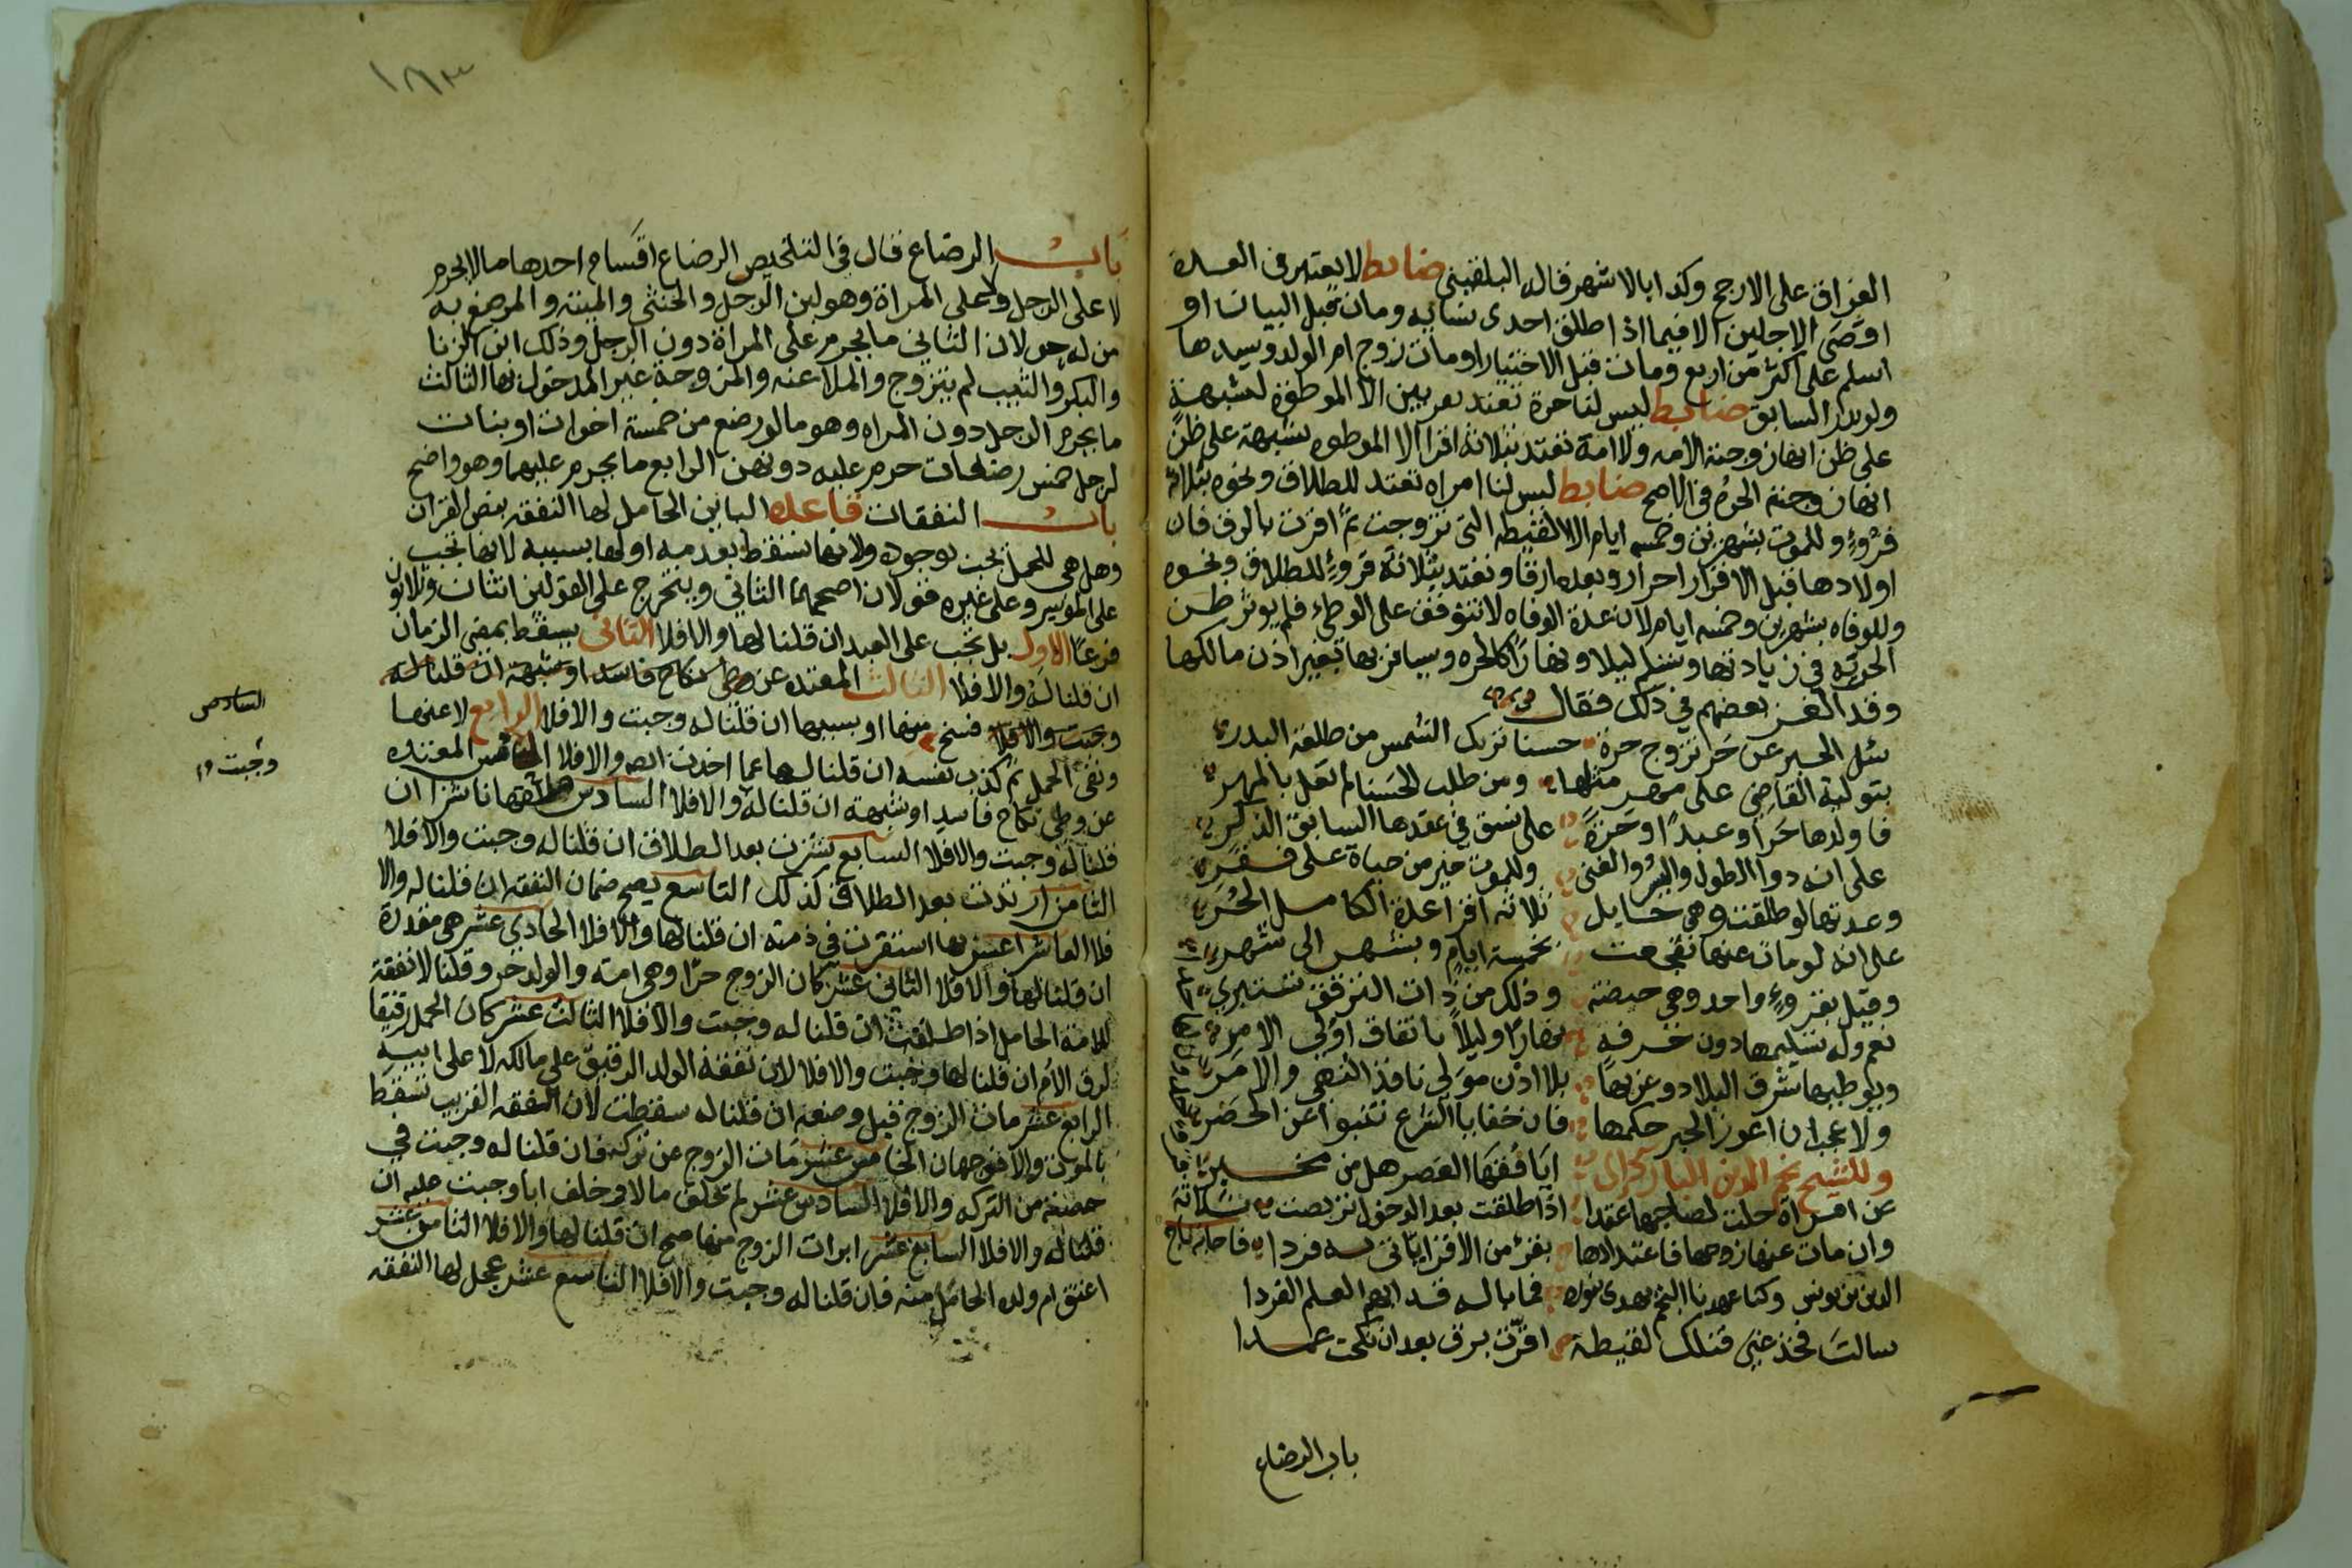 الفراق على الارجح وكذا بالاشهر قال البلقيني ضابط لا يعتبر في العدة
اقصى الاجلين الا فيما اذا طلق احدى نسايه ومات قبل البيان او
اسلم على اكثر من اربع ومات قبل الاختيار او مات زوج ام الولد وسيدها
ولم يدر السابق ضابط ليس لنا حرة تعتد بقرءين الا الموطؤة لشبهة
على ظن انها زوجته الامه ولا امة تعتد بثلاثة اقرا الا الموطوه بشبهة على ظن
انها زوجته الحره في الاصح ضابط ليس لنا امراه تعتد للطلاق ونحوه بثلاثة
قروء وللموت بشهرين وخمسه ايام الا اللقيطه التي تزوجت ثم اقرت بالرق فان
اولادها قبل الاقرار احرار وبعده ارقا وتعتد بثلاثة قروء للطلاق ونحوه
وللوفاه بشهرين وخمسه ايام لان عدة الوفاه لا تتوقف على الوطء فلم يوثر ظن
الحريه في زيادتها وتسلم ليلا ونهارا كالحره ويسافر بها بغير اذن مالكها
وقد الغز بعضهم في ذلك فقال
سل الحبر عن حر تزوج حرة حسنا تريك الشمس من طلعة البدر
بتولية القاضي على مهر مثلها ومن طلب الحسنا لم يغل بالمهر
فاولدها حرا وعبدا وحرة على نسق في عقدها السابق الذكر
على انه ذو الطول واليسر والغنى وللموت خير من حياة على فقر
وعدتها لو طلقت وهي حايل ثلاثة اقرا عدة الكامل الحر
على انه لو مات عنها تقيمت بخمسة ايام وبشهر الى شهر
وقيل بقروء واحد وهي حيضة وذلك من ذات الترفق تستبري
نعم وله تسليمها دون خرفه نهارا وليلا باتفاق اولي الامر
ويوطيها شرق البلاد وغربها بلا اذن مولى نافذ النهي والامر
ولا عجب ان اعوز الحبر حكمها فان خفايا الشرع تنبوا عن الحصر
وللشيخ نجم الدين البارزي ايا فقها العصر هل من مخبر
عن امراة حلت لصاحبها عقدا اذا طلقت بعد الدخول تربصت ثلاثة
وان مات عنها زوجها فاعتدادها بقرء من الاقرا تاتي به فردا فاجابه تاج
الدين بن يونس وكنا عهدنا النجم يهدي بنوره فما باله قد ابهم العلم الفردا
سالت فخذ عني فتلك لقيطة اقرت برق بعد ان نكحت عمدا
باب الرضاع
١٨٣
باب الرضاع قال في التلخيص الرضاع اقسام احدها ما لا يحرم
لا على الرجل ولا على المراة وهو لبن الرجل والخنثى والميتة والمرضع به
من له حولان الثاني ما يحرم على المراة دون الرجل وذلك ابن الزنا
والبكر والثيب لم يتزوج والملاعنه والمزوجة غير المدخول بها الثالث
ما يحرم الرجل دون المراه وهو ما لو رضع من خمسة اخوات او بنات
لرجل خمس رضعات حرم عليه دونهن الرابع ما يحرم عليهما وهو واضح
باب النفقات قاعده الباين الحامل لها النفقه بنص القران
وهل هي للحمل تجب بوجوده ولانها تسقط بعدمه او لها بسببه لانها تجب
على الموسر وعلى غيره قولان اصحهما الثاني ويتخرج على القولين اثنان وثلاثون
فرعا الاول هل تجب على العبد ان قلنا لها والا فلا الثاني يسقط بمضي الزمان
ان قلنا له والا فلا الثالث المعتده عن وطي نكاح فاسد او شبهة ان قلنا له
وجبت والا فلا فسخ منها او بسببها ان قلنا له وجبت والا فلا الرابع لاعنها
ونفى الحمل ثم كذب نفسه ان قلنا لها عما اخذت والا فلا الخامس المعتده
عن وطي نكاح فاسد او شبهة ان قلنا له والا فلا السادس طلقها ناشزا ان
قلنا له وجبت والا فلا السابع نشزت بعد الطلاق ان قلنا له وجبت والا فلا
الثامن ارتدت بعد الطلاق كذلك التاسع يصح ضمان النفقه ان قلنا له والا
فلا العاشر اعسر بها استقرت في ذمته ان قلنا لها والا فلا الحادي عشر هي مقدرة
ان قلنا لها والا فلا الثاني عشر كان الزوج حرا وهي امته والولد حر وقلنا لا نفقة
للامة الحامل اذا طلقت ان قلنا له وجبت والا فلا الثالث عشر كان الحمل رقيقا
لرق الام ان قلنا لها وجبت والا فلا لان نفقة الولد الرقيق على مالكه لا على ابيه
الرابع عشر مات الزوج قبل وضعه ان قلنا له سقطت لان النفقه القريب تسقط
بالموت والا فوجهان الخامس عشر مات الزوج عن تركه فان قلنا له وجبت في
حصته من التركه والا فلا السادس عشر لم تخلف مالا وخلف ابا وجبت عليه ان
قلنا له والا فلا السابع عشر ابرات الزوج منها صح ان قلنا لها والا فلا الثامن عشر
اعتق ام ولده الحامل منه فان قلنا له وجبت والا فلا التاسع عشر عجل لها النفقه
السادس
وجبت